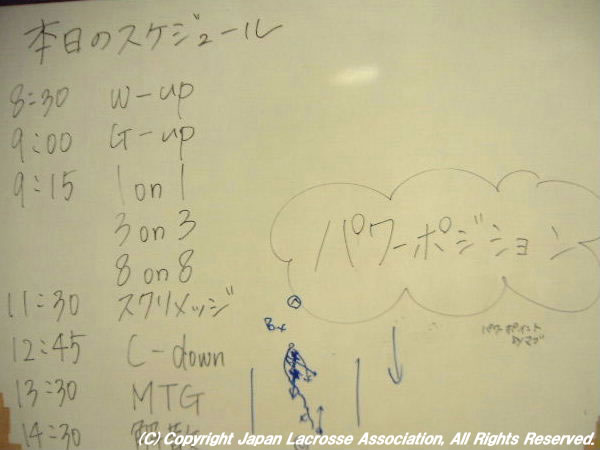 本日のスケジュール
8:30 W-up
9:00 G-up
9:15 1 on 1
3 on 3
8 on 8
11:30 スクリメッジ
12:45 C-down
13:30 MTG
14:30 解散
パワーポジション
パワーポイント
(C) Copyright Japan Lacrosse Association, All Rights Reserved.